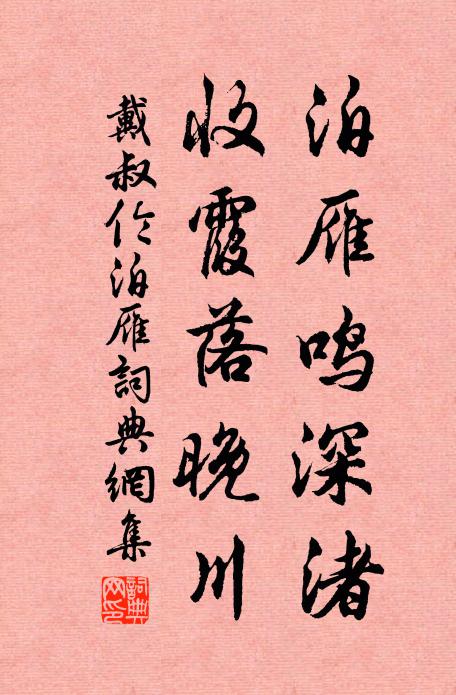 泊雁鸣深渚
收霞落晚川
戴叔伦泊雁詞典網集
詞典
网印